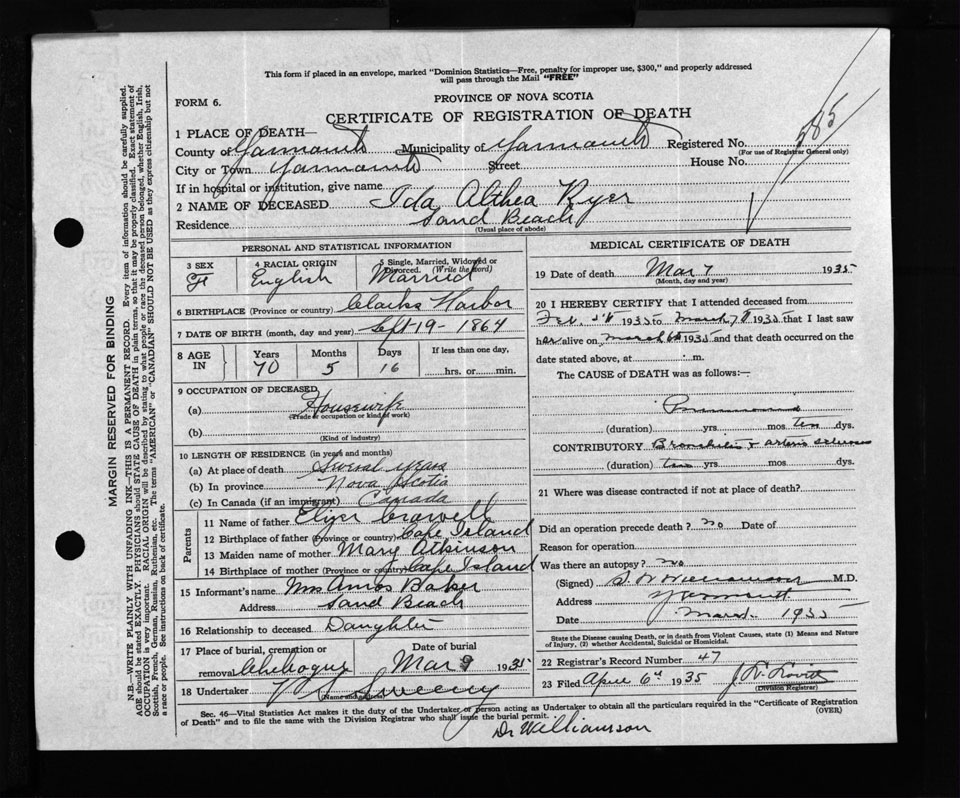 This form if placed in an envelope, marked "Dominion Statistics—Free, penalty for improper use, $300," and properly addressed
will pass through the Mail "FREE"
PROVINCE OF NOVA SCOTIA
FORM 6.
CERTIFICATE OF REGISTRATION OF DEATH
585
1 PLACE OF DEATH—
County of Yarmouth Municipality of Yarmouth Registered No.
(For use of Registrar General only)
City or Town Yarmouth Street House No.
If in hospital or institution, give name
2 NAME OF DECEASED Ida Althea Ryer
Residence Sand Beach
(Usual place of abode)
PERSONAL AND STATISTICAL INFORMATION
3 SEX F
4 RACIAL ORIGIN English
5 Single, Married, Widowed or Divorced. (Write the word) Married
6 BIRTHPLACE (Province or country) Clarks Harbor
7 DATE OF BIRTH (month, day and year) Sept-19-1864
8 AGE IN Years 70 Months 5 Days 16 If less than one day, hrs. or min.
9 OCCUPATION OF DECEASED
(a) Housewife
(Trade or occupation or kind of work)
(b)
(Kind of industry)
10 LENGTH OF RESIDENCE (in years and months)
(a) At place of death Several years
(b) In province Nova Scotia
(c) In Canada (if an immigrant) Canada
Parents
11 Name of father Crowell
12 Birthplace of father (Province or country) Cape Island
13 Maiden name of mother Mary Atkinson
14 Birthplace of mother (Province or country) Cape Island
15 Informant's name Mrs Amos Baker
Address Sand Beach
16 Relationship to deceased Daughter
17 Place of burial, cremation or removal Date of burial Mar 9 1935
18 Undertaker Sweeny
(Name and address)
MEDICAL CERTIFICATE OF DEATH
19 Date of death Mar 7 1935
(Month, day and year)
20 I HEREBY CERTIFY that I attended deceased from
Feb. 1935 to March 7 1935 that I last saw
her alive on March 6 1935 and that death occurred on the
date stated above, at . m.
The CAUSE of DEATH was as follows:—
Pneumonia
(duration) yrs mos ten dys.
CONTRIBUTORY Bronchitis & arterio sclerosis
(duration) ten yrs mos dys.
21 Where was disease contracted if not at place of death?
Did an operation precede death? no Date of
Reason for operation
Was there an autopsy? no
(Signed) Williamson M.D.
Address Yarmouth
Date March 1935
State the Disease causing Death, or in death from Violent Causes, state (1) Means and Nature
of Injury, (2) whether Accidental, Suicidal or Homicidal.
22 Registrar's Record Number 47
23 Filed April 6th 1935 Lovitt
(Division Registrar)
Sec. 46—Vital Statistics Act makes it the duty of the Undertaker or person acting as Undertaker to obtain all the particulars required in the "Certificate of Registration
of Death" and to file the same with the Division Registrar who shall issue the burial permit. (OVER)
Dr Williamson
MARGIN RESERVED FOR BINDING
N.B.—WRITE PLAINLY WITH UNFADING INK—THIS IS A PERMANENT RECORD. Every item of information should be carefully supplied.
AGE should be stated EXACTLY. PHYSICIANS should STATE CAUSE OF DEATH in plain terms, so that it may be properly classified. Exact statement of
OCCUPATION is very important. RACIAL ORIGIN will be described by stating to what people or race the deceased person belonged, whether English, Irish,
Scottish, French, German, Russian, Ruthenian, etc. The terms "AMERICAN" or "CANADIAN" SHOULD NOT BE USED as they express citizenship but not
a race or people. See instructions on back of certificate.